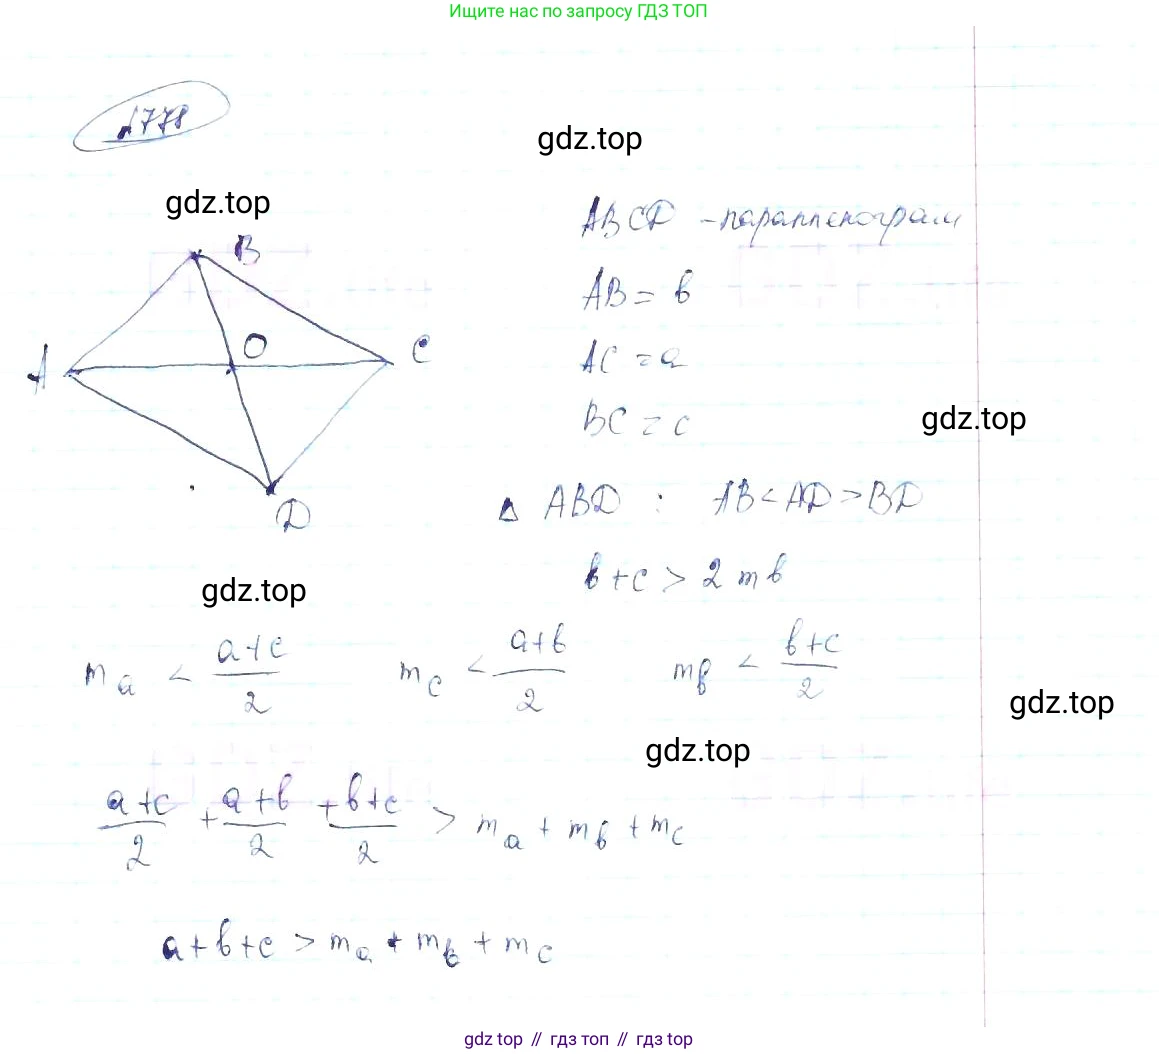 Ищите нас по запросу ГДЗ ТОП
gdz.top
gdz.top
B
O
C
A
D
ABCD - параллелограм
AB = b
AC = a
BC = c
gdz.top
Δ ABD : AB < AD > BD
b + c > 2 m b
gdz.top
m_a < (a+c)/2 m_c < (a+b)/2 m_b < (b+c)/2
gdz.top
gdz.top
(a+c)/2 + (a+b)/2 + (b+c)/2 > m_a + m_b + m_c
a + b + c > m_a + m_b + m_c
gdz.top // гдз топ // гдз top